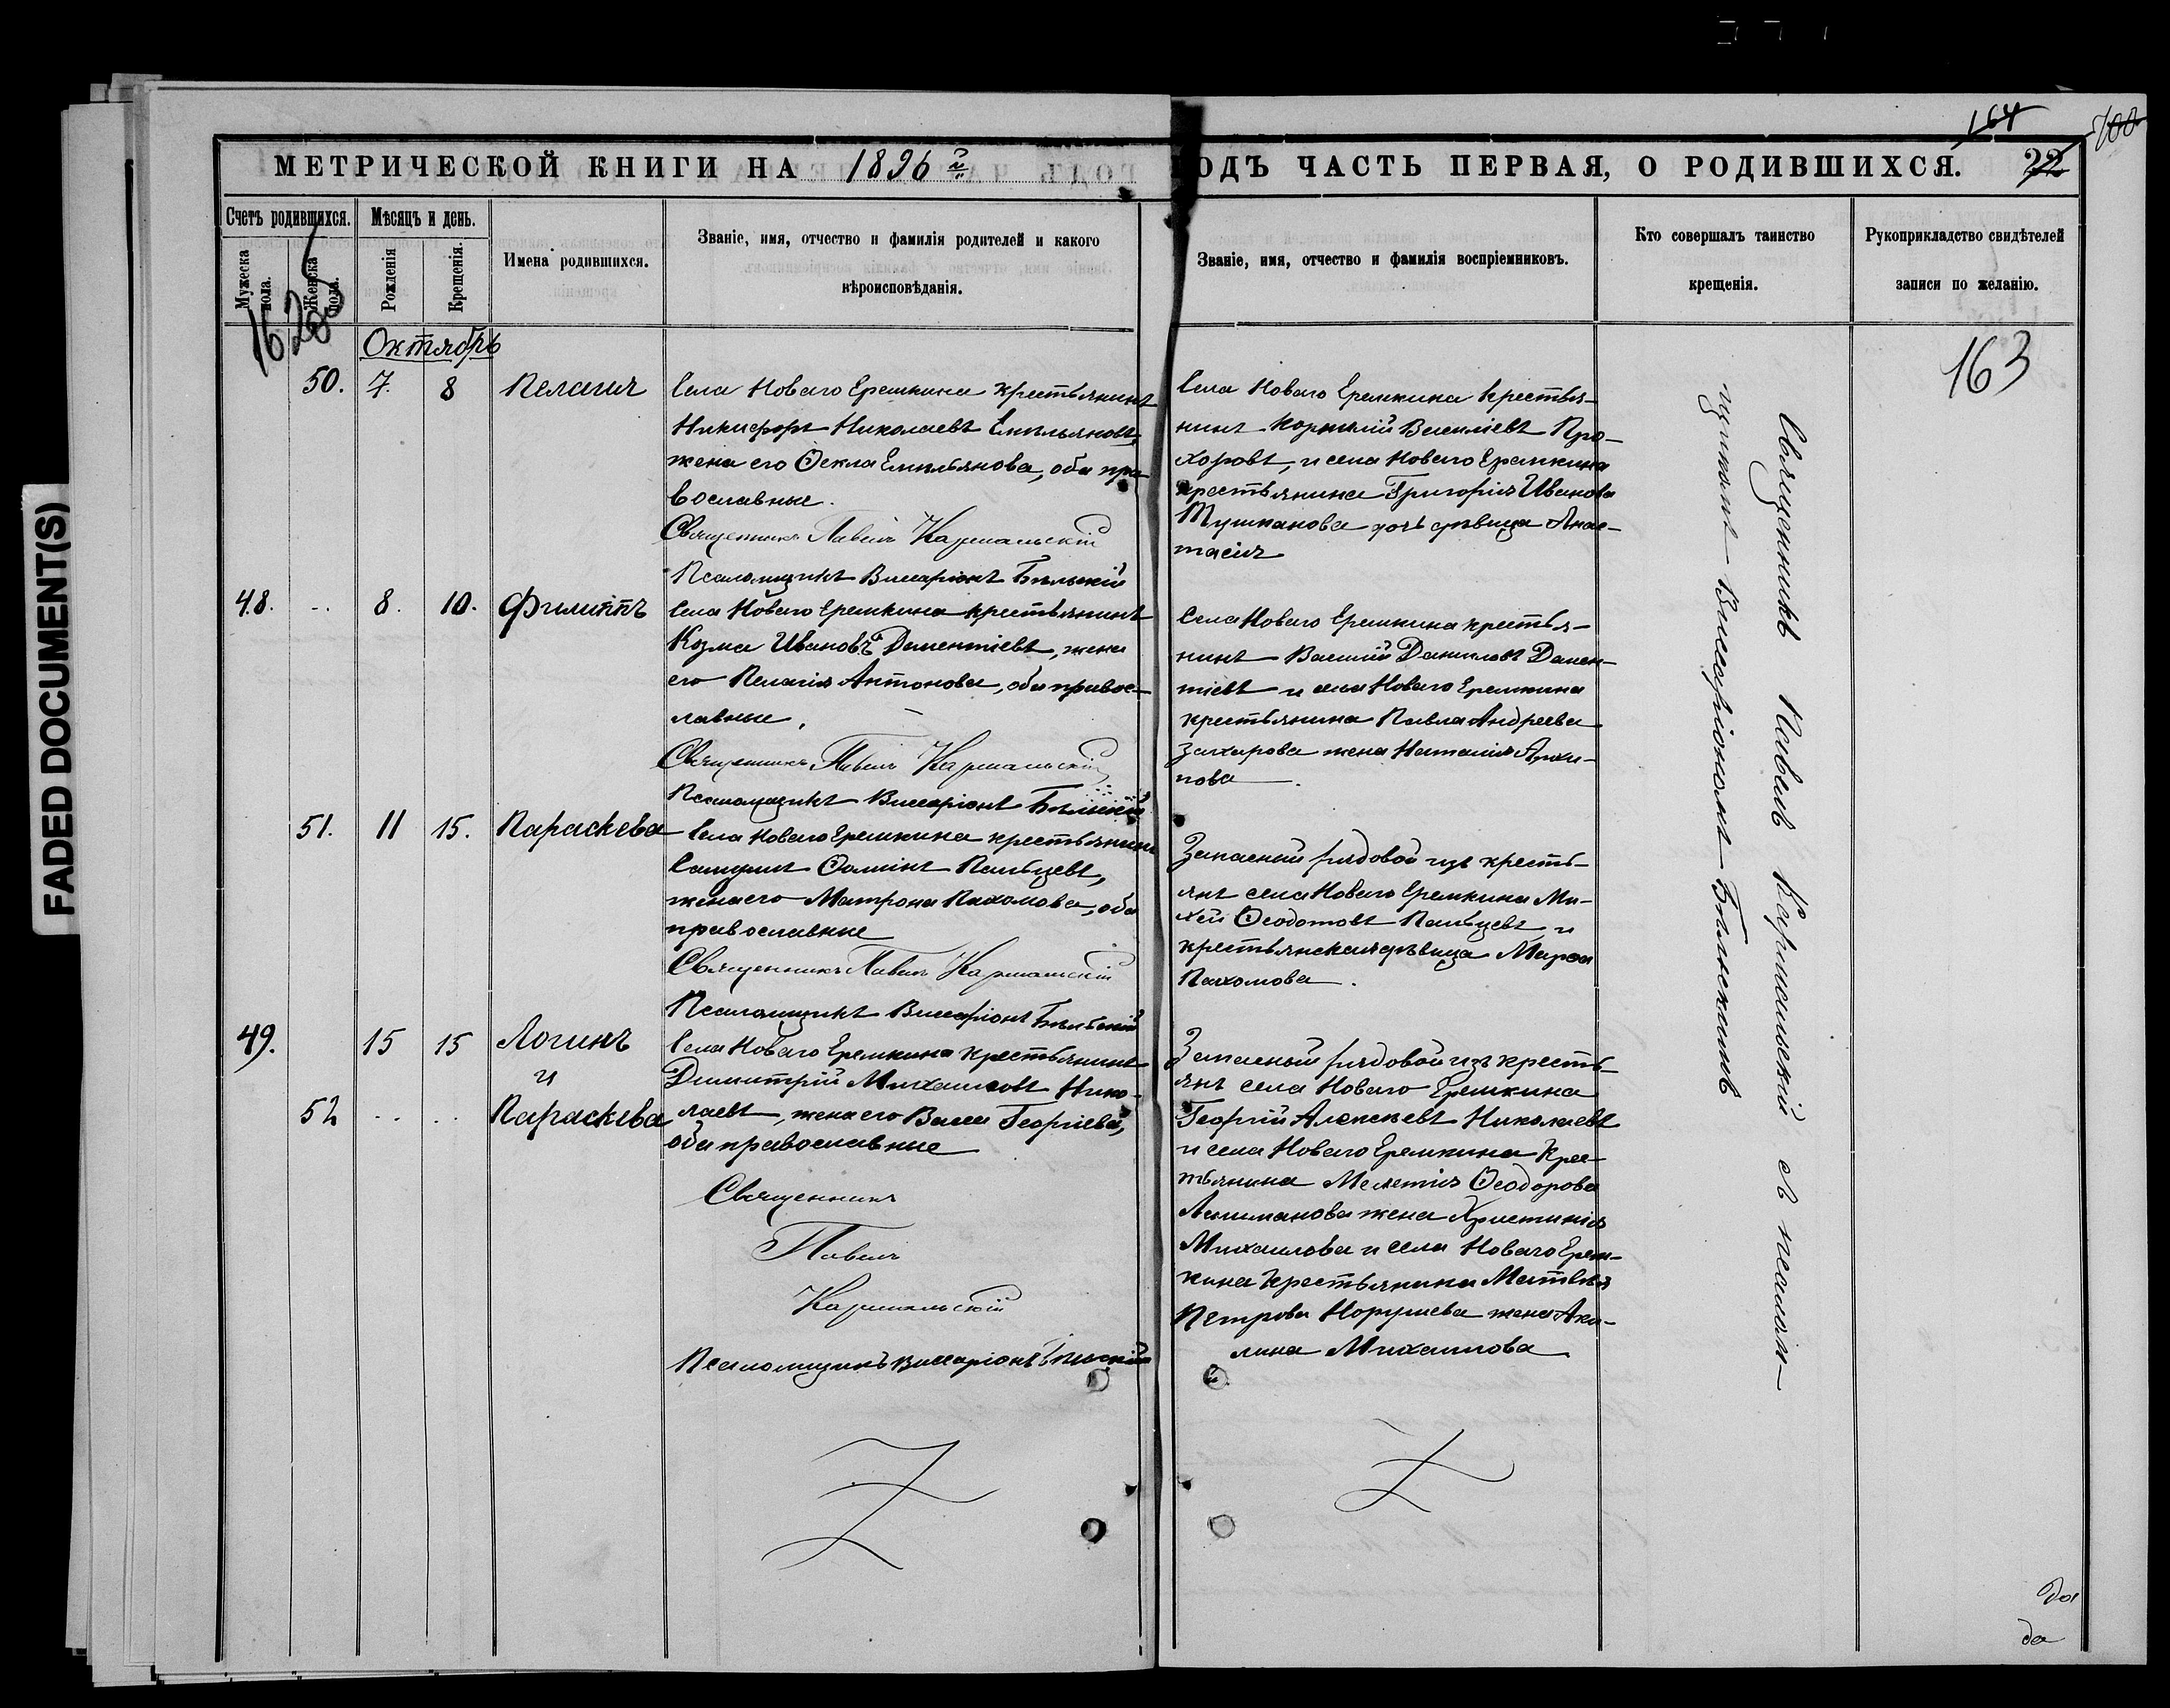 164
100
МЕТРИЧЕСКОЙ КНИГИ НА 1896 й ГОДЪ ЧАСТЬ ПЕРВАЯ, О РОДИВШИХСЯ. 22
Счетъ родившихся.
Мужеска пола.
Женска пола.
Мѣсяцъ и день.
Рожденія
Крещенія.
Имена родившихся.
Званіе, имя, отчество и фамилія родителей и какого
вѣроисповѣданія.
Званіе, имя, отчество и фамилія воспріемниковъ.
Кто совершалъ таинство
крещенія.
Рукоприкладство свидѣтелей
записи по желанію.
162
163
Октябрь
50. 7. 8 Пелагія
Села Новаго Еремкина крестьянинъ
Никифоръ Николаевъ Емельяновъ,
жена его Ѳекла Емельянова, оба пра-
вославные.
Священникъ Павелъ Кармальскій
Псаломщикъ Виссаріонъ Бѣльскій
Села Новаго Еремкина крестья-
нинъ Корнилій Василіевъ Про-
хоровъ, и села Новаго Еремкина
крестьянина Григорія Иванова
Тушканова дочь дѣвица Анас-
тасія
48. 8. 10. Филиппъ
Села Новаго Еремкина крестьянинъ
Козма Ивановъ Дементіевъ, жена
его Пелагія Антонова, оба правос-
лавные.
Священникъ Павелъ Кармальскій
Псаломщикъ Виссаріонъ Бѣльскій
Села Новаго Еремкина крестья-
нинъ Василій Даниловъ Демен-
тіевъ и села Новаго Еремкина
крестьянина Павла Андреева
Захарова жена Наталія Архи-
пова.
51. 11 15. Параскева
Села Новаго Еремкина крестьянинъ
Ѳоминъ Пальцевъ,
жена его Матрона Пахомова, оба
православные
Священникъ Павелъ Кармальскій
Псаломщикъ Виссаріонъ Бѣльскій
Запасный рядовой изъ кресть-
янъ села Новаго Еремкина Ми-
хей Ѳеодотовъ Пальцевъ и
крестьянская дѣвица Марѳа
Пахомова.
49. 15 15 Логинъ
и
52 Параскева
Села Новаго Еремкина крестьянинъ
Димитрій Михаиловъ Нико-
лаевъ, жена его Васса Георгіева,
оба православные
Священникъ
Павелъ
Кармальскій
Псаломщикъ Виссаріонъ Бѣльскій
Запасный рядовой изъ кресть-
янъ села Новаго Еремкина
Георгій Алексѣевъ Николаевъ
и села Новаго Еремкина крес-
тьянина Мелетія Ѳеодорова
жена Христинія
Михаилова и села Новаго Ерем-
кина крестьянина Матвѣя
Петрова Норушева жена Аки-
лина Михаилова
Священникъ Павелъ Кармальскій съ псалом-
щикомъ Виссаріономъ Бѣльскимъ
да